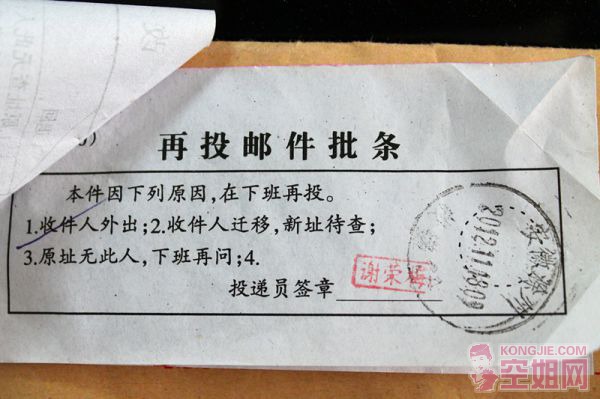 再投邮件批条
本件因下列原因,在下班再投。
1.收件人外出;2.收件人迁移,新址待查;
3.原址无此人,下班再问;4.
投递员签章
谢荣
安徽
2012.11.18.09
KONGJIE.COM
空姐网